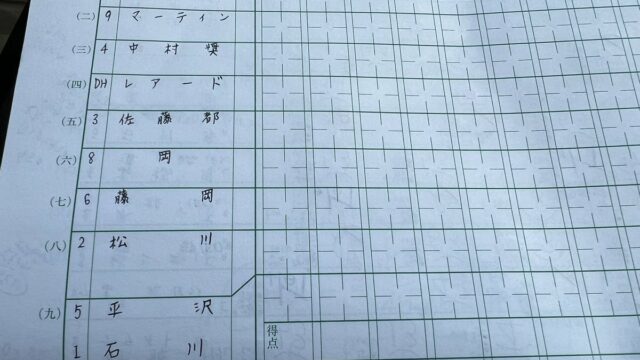 (二) 9 マーティン
(三) 4 中村奨
(四) DH レアード
(五) 3 佐藤都
(六) 8 岡
(七) 6 藤岡
(八) 2 松川
(九) 5 平沢
1 石川
得点